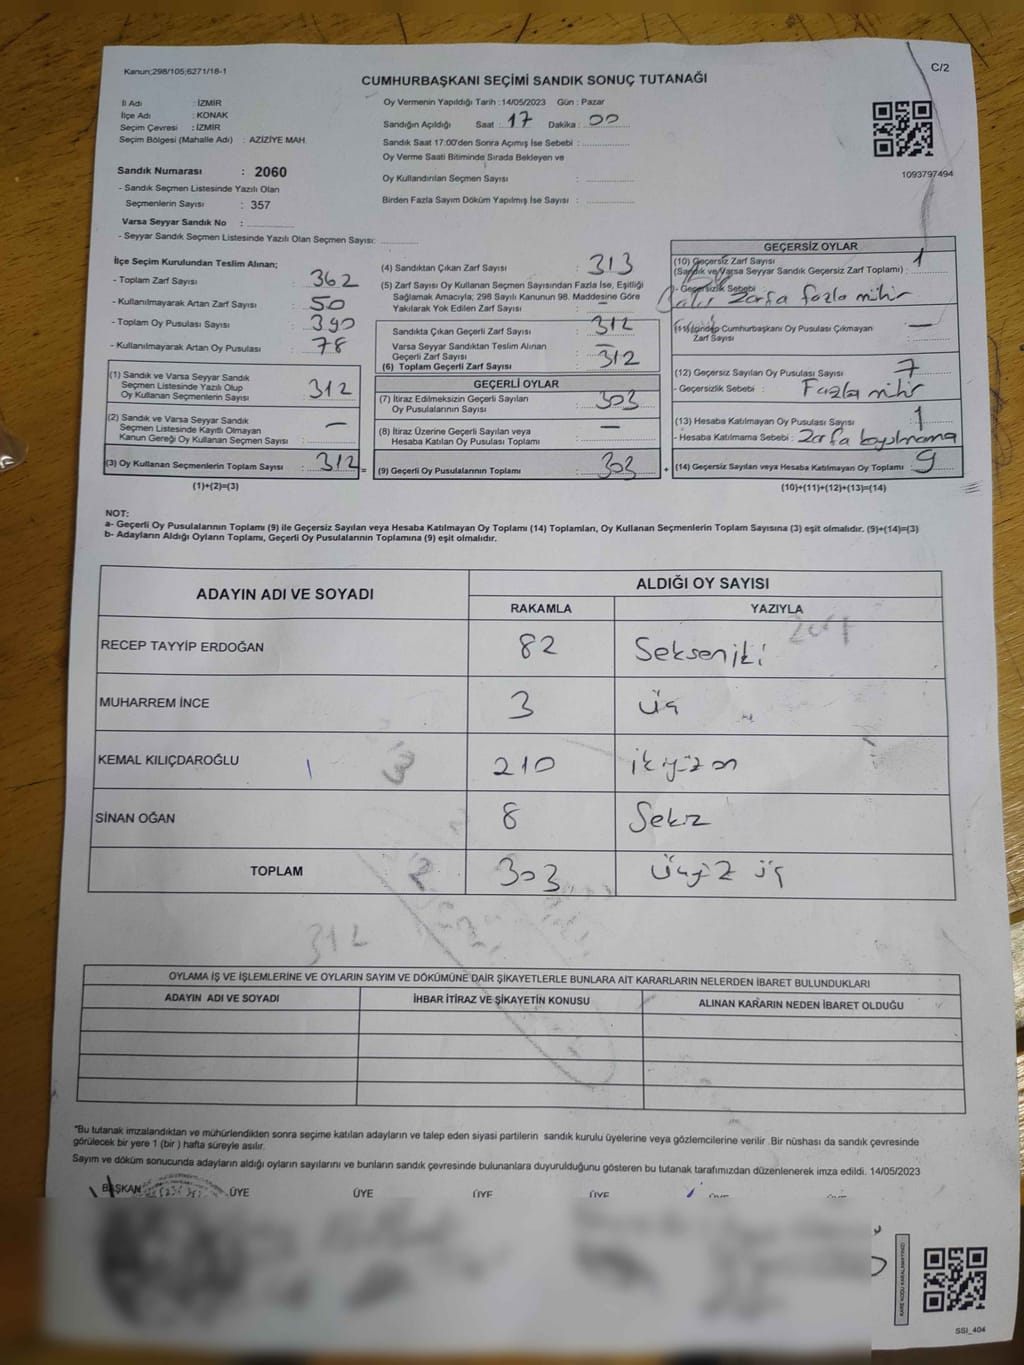 Kanun;298/105;6271/18-1
C/2
CUMHURBAŞKANI SEÇİMİ SANDIK SONUÇ TUTANAĞI
İl Adı : İZMİR
İlçe Adı : KONAK
Seçim Çevresi : İZMİR
Seçim Bölgesi (Mahalle Adı) : AZİZİYE MAH.
Oy Vermenin Yapıldığı Tarih :14/05/2023 Gün : Pazar
Sandığın Açıldığı Saat : 17 Dakika : 00
Sandık Saat 17:00'den Sonra Açmış İse Sebebi :
Oy Verme Saati Bitiminde Sırada Bekleyen ve
Oy Kullandırılan Seçmen Sayısı :
Birden Fazla Sayım Döküm Yapılmış İse Sayısı :
1093797494
Sandık Numarası : 2060
- Sandık Seçmen Listesinde Yazılı Olan
Seçmenlerin Sayısı : 357
Varsa Seyyar Sandık No :
- Seyyar Sandık Seçmen Listesinde Yazılı Olan Seçmen Sayısı:
İlçe Seçim Kurulundan Teslim Alınan;
- Toplam Zarf Sayısı : 362
- Kullanılmayarak Artan Zarf Sayısı : 50
- Toplam Oy Pusulası Sayısı : 390
- Kullanılmayarak Artan Oy Pusulası : 78
(1) Sandık ve Varsa Seyyar Sandık
Seçmen Listesinde Yazılı Olup
Oy Kullanan Seçmenlerin Sayısı : 312
(2) Sandık ve Varsa Seyyar Sandık
Seçmen Listesinde Kayıtlı Olmayan
Kanun Gereği Oy Kullanan Seçmen Sayısı : —
(3) Oy Kullanan Seçmenlerin Toplam Sayısı : 312 =
(1)+(2)=(3)
(4) Sandıktan Çıkan Zarf Sayısı : 313
(5) Zarf Sayısı Oy Kullanan Seçmen Sayısından Fazla İse, Eşitliği
Sağlamak Amacıyla; 298 Sayılı Kanunun 98. Maddesine Göre
Yakılarak Yok Edilen Zarf Sayısı : —
Sandıkta Çıkan Geçerli Zarf Sayısı : 312
Varsa Seyyar Sandıktan Teslim Alınan
Geçerli Zarf Sayısı : —
(6) Toplam Geçerli Zarf Sayısı : 312
GEÇERLİ OYLAR
(7) İtiraz Edilmeksizin Geçerli Sayılan
Oy Pusulalarının Sayısı : 303
(8) İtiraz Üzerine Geçerli Sayılan veya
Hesaba Katılan Oy Pusulası Toplamı : —
(9) Geçerli Oy Pusulalarının Toplamı : 303 +
GEÇERSİZ OYLAR
(10) Geçersiz Zarf Sayısı
(Sandık ve Varsa Seyyar Sandık Geçersiz Zarf Toplamı) : 1
- Geçersizlik Sebebi :
Zarfa fazla mühür
(11) İçinden Cumhurbaşkanı Oy Pusulası Çıkmayan
Zarf Sayısı : —
(12) Geçersiz Sayılan Oy Pusulası Sayısı : 7
- Geçersizlik Sebebi : Fazla mühür
(13) Hesaba Katılmayan Oy Pusulası Sayısı : 1
- Hesaba Katılmama Sebebi : Zarfa koyulmama
(14) Geçersiz Sayılan veya Hesaba Katılmayan Oy Toplamı : 9
(10)+(11)+(12)+(13)=(14)
NOT:
a- Geçerli Oy Pusulalarının Toplamı (9) ile Geçersiz Sayılan veya Hesaba Katılmayan Oy Toplamı (14) Toplamları, Oy Kullanan Seçmenlerin Toplam Sayısına (3) eşit olmalıdır. (9)+(14)=(3)
b- Adayların Aldığı Oyların Toplamı, Geçerli Oy Pusulalarının Toplamına (9) eşit olmalıdır.
ADAYIN ADI VE SOYADI
ALDIĞI OY SAYISI
RAKAMLA YAZIYLA
RECEP TAYYİP ERDOĞAN 82 Seksen iki
MUHARREM İNCE 3 üç
KEMAL KILIÇDAROĞLU 210 ikiyüz on
SİNAN OĞAN 8 Sekiz
TOPLAM 303 üçyüz üç
312
OYLAMA İŞ VE İŞLEMLERİNE VE OYLARIN SAYIM VE DÖKÜMÜNE DAİR ŞİKAYETLERLE BUNLARA AİT KARARLARIN NELERDEN İBARET BULUNDUKLARI
ADAYIN ADI VE SOYADI İHBAR İTİRAZ VE ŞİKAYETİN KONUSU ALINAN KARARIN NEDEN İBARET OLDUĞU
"Bu tutanak imzalandıktan ve mühürlendikten sonra seçime katılan adayların ve talep eden siyasi partilerin sandık kurulu üyelerine veya gözlemcilerine verilir .Bir nüshası da sandık çevresinde
görülecek bir yere 1 (bir ) hafta süreyle asılır.
Sayım ve döküm sonucunda adayların aldığı oyların sayılarını ve bunların sandık çevresinde bulunanlara duyurulduğunu gösteren bu tutanak tarafımızdan düzenlenerek imza edildi. 14/05/2023
BAŞKAN ÜYE ÜYE ÜYE ÜYE
KARE KODU KARALAMAYINIZ!
SSI_404